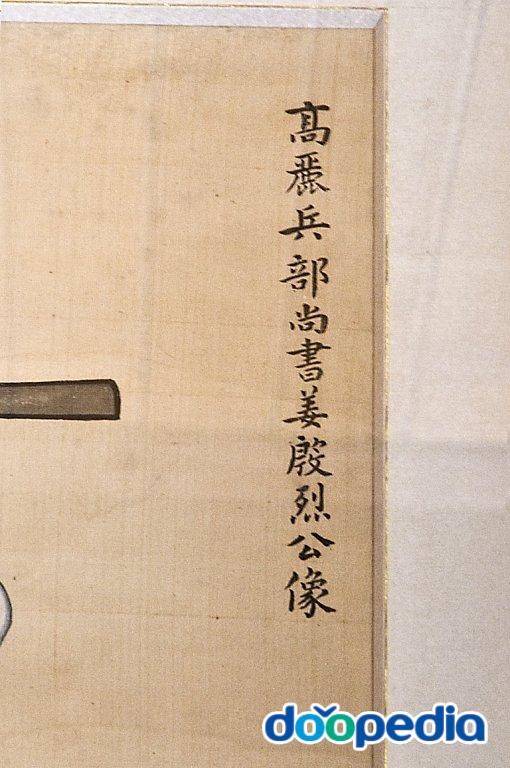 高麗兵部尚書姜殷烈公像
doopedia